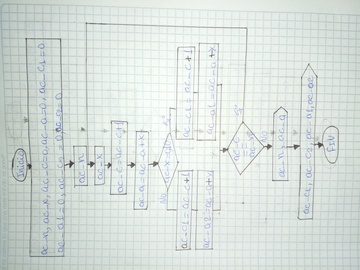 Inicio
ac-n, ac-x, ac-c=0, ac-a=0, ac-c1=0
ac-a1=0, ac-c2=0, ac-a2=0
ac-n
ac-x
ac-c=ac-c+1
ac-a=ac-a+x
No
Si
ac-c1=ac-c+1
ac-c2=ac-c+1
ac-a2=ac-a+x
ac-a1=ac-a+x
ac-c
Si
No
ac-n, ac-a
ac-c1, ac-c2, ac-a1, ac-a2
FIN